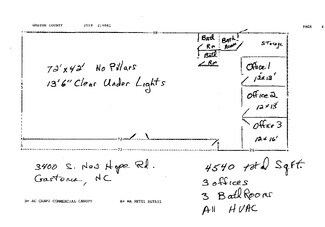 GASTON COUNTY
PAGE
Bath Rm
Bath Room
Bath Rm
Storage
72'x42' No Pillars
13'6" Clear Under Lights
Office 1
12x13'
Office 2
12x13'
Office 3
12x16'
3400 S. New Hope Rd.
Gastonia, NC
4540 total Sqft.
3 offices
3 BathRooms
All HVAC